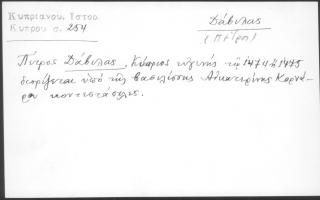 Κυπριανού, Ιστορ.
Κύπρου σ. 254
Δάβιλας
(Πέτρος)
Πέτρος Δάβιλας, Κύπριος εὐγενής τῷ 1474 ἢ 1475
διορίζεται ὑπὸ τῆς βασιλίσσης Αἰκατερίνης Κορνά-
ρου κοντοστάβλης.